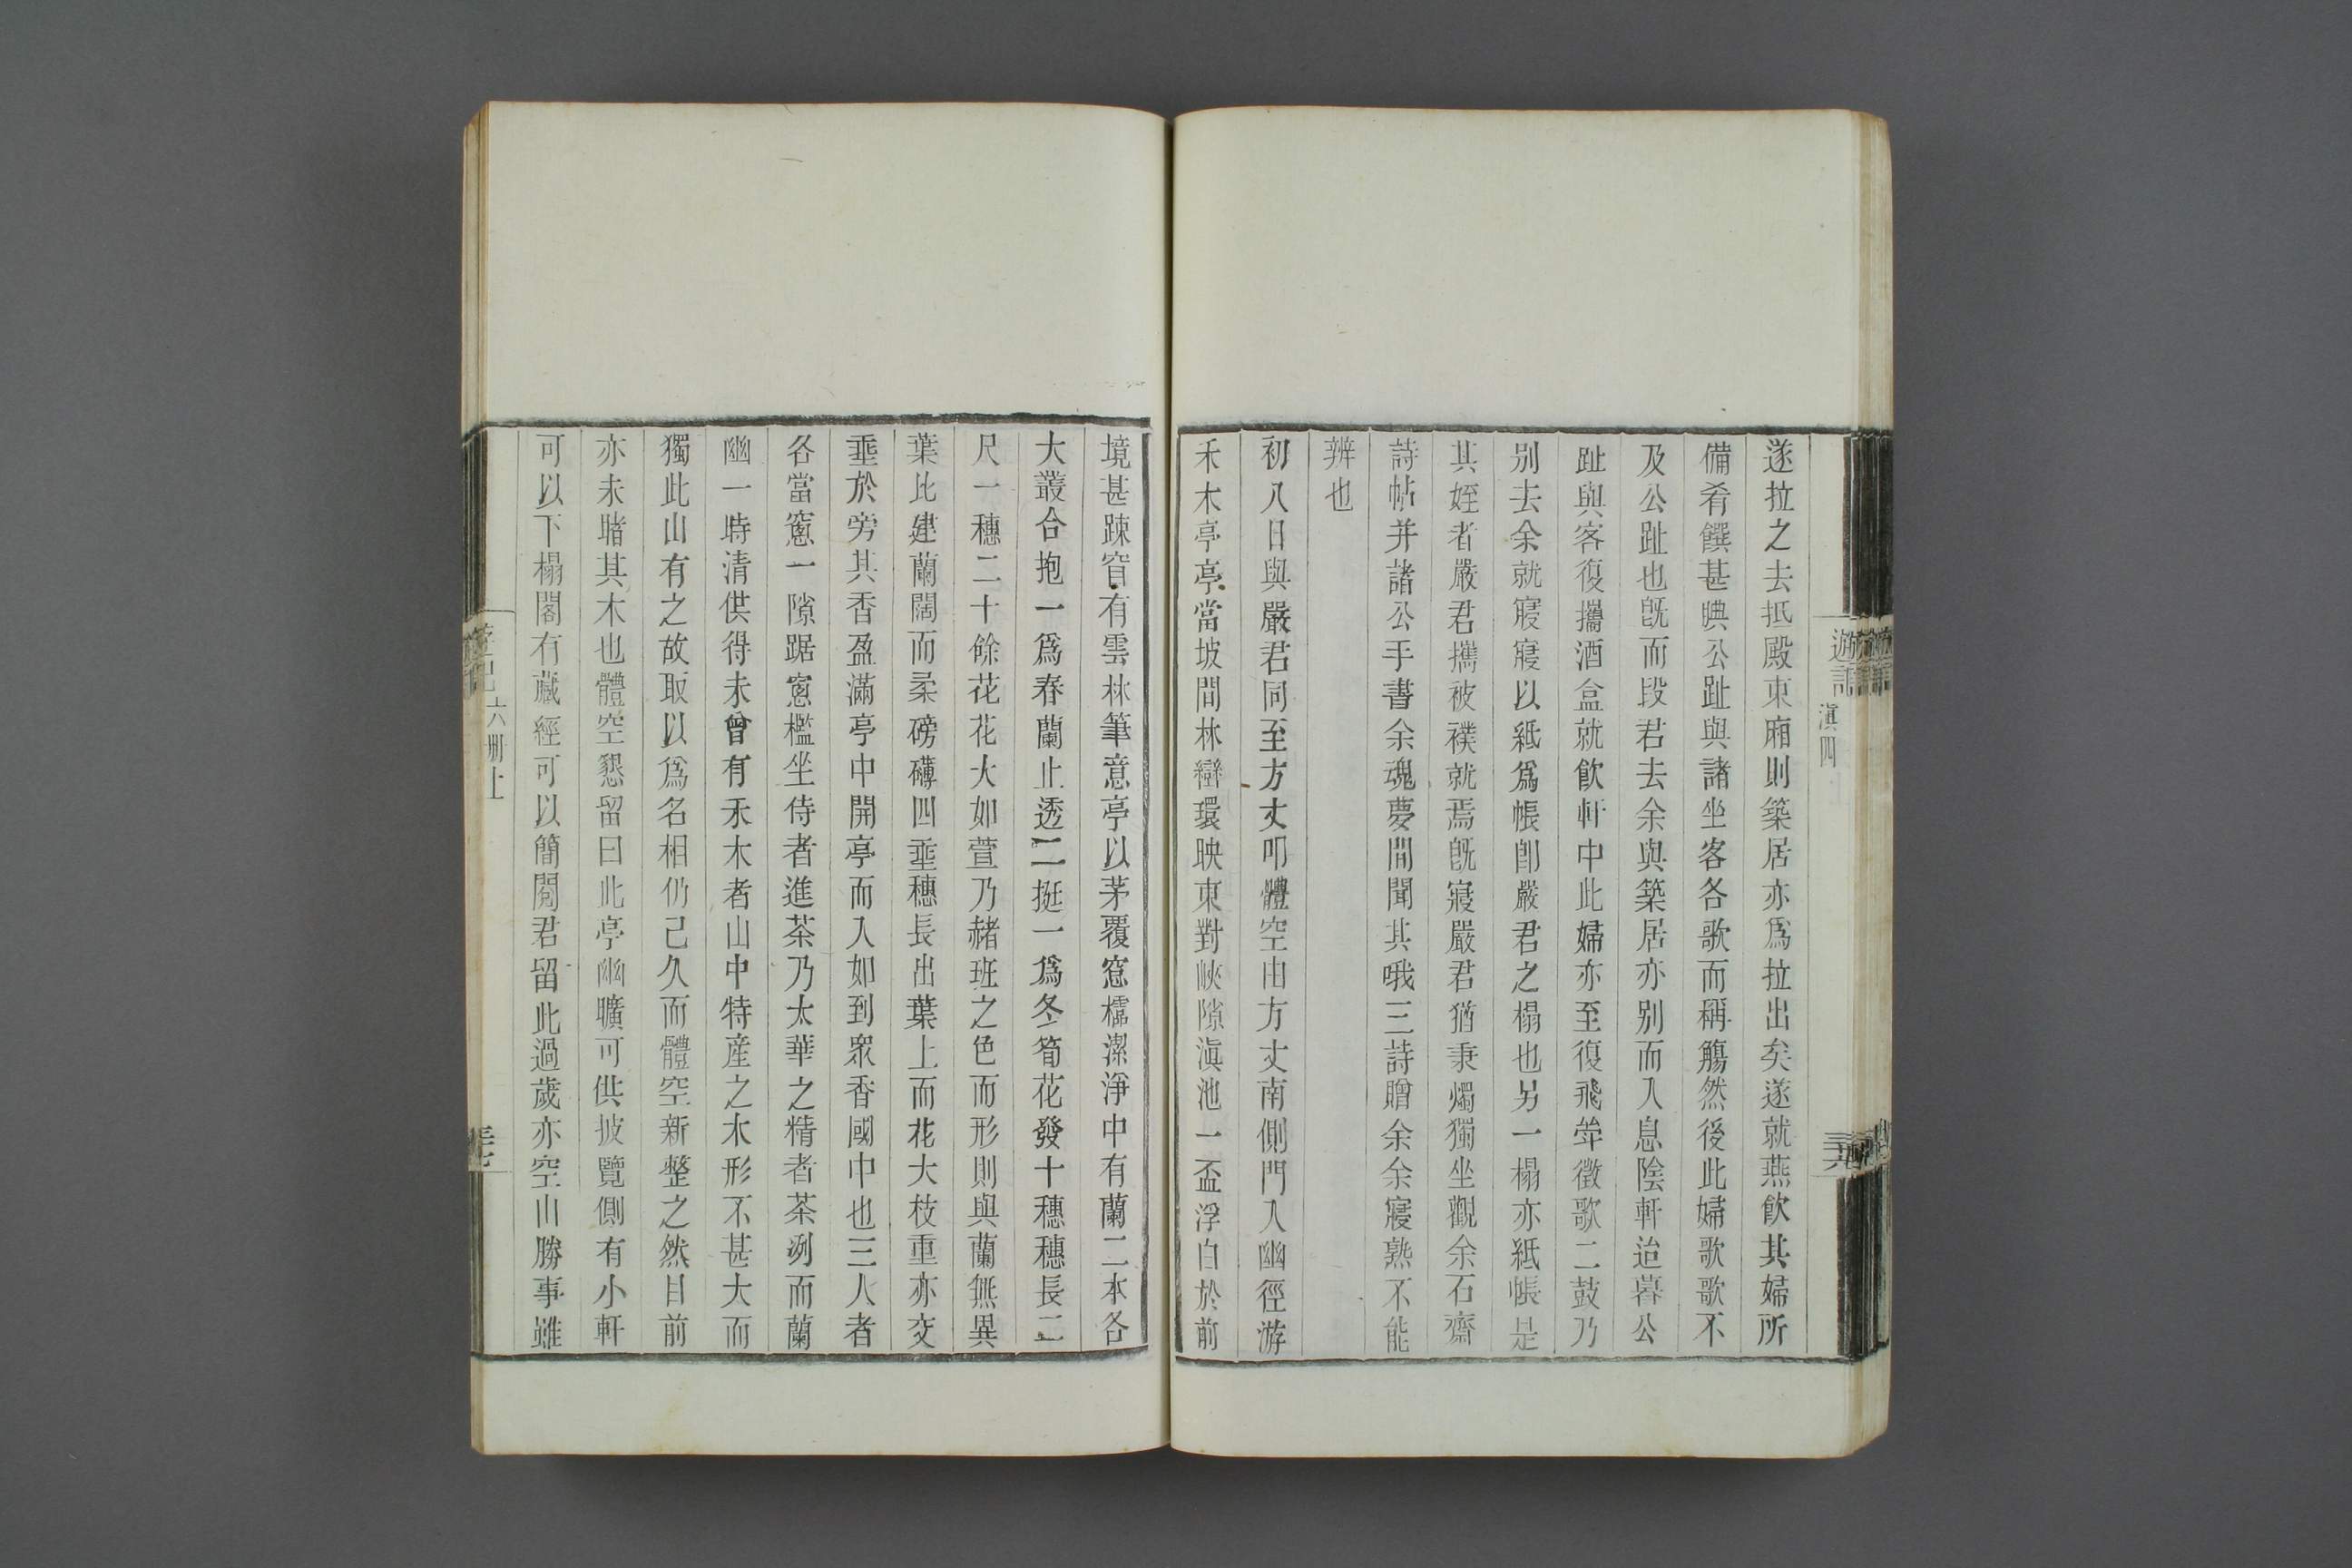 遊記
滇四
遂拉之去抵殿東廂則築居亦爲拉出矣遂就燕飲其婦所
備肴饌甚腆公趾與諸坐客各歌而稱觴然後此婦歌歌不
及公趾也旣而段君去余與築居亦别而入息陰軒迨暮公
趾與客復攜酒盒就飲軒中此婦亦至復飛斝徵歌二鼓乃
别去余就寢寢以紙爲帳卽嚴君之榻也另一榻亦紙帳是
其姪者嚴君攜被襆就焉旣寢嚴君猶秉燭獨坐觀余石齋
詩帖并諸公手書余魂夢間聞其哦三詩贈余余寢熟不能
辨也
初八日與嚴君同至方丈叩體空由方丈南側門入幽徑游
禾木亭亭當坡間林巒環映東對峽隙滇池一盃浮白於前
境甚疎窅有雲林筆意亭以茅覆窓櫺潔淨中有蘭二本各
大叢合抱一爲春蘭止透二挺一爲冬蘭花發十穗穗長二
尺一穗二十餘花花大如萱乃赭斑之色而形則與蘭無異
葉比建蘭闊而柔磅礴四垂穗長出葉上而花大枝重亦交
垂於旁其香盈滿亭中開亭而入如到衆香國中也三人者
各當窻一隙踞窻檻坐侍者進茶乃太華之精者茶冽而蘭
幽一時清供得未曾有禾木者山中特産之木形不甚大而
獨此山有之故取以爲名相仍己久而體空新整之然目前
亦未睹其木也體空懇留曰此亭幽曠可供披覽側有小軒
可以下榻閣有藏經可以簡閱君留此過歲亦空山勝事雖
六册上